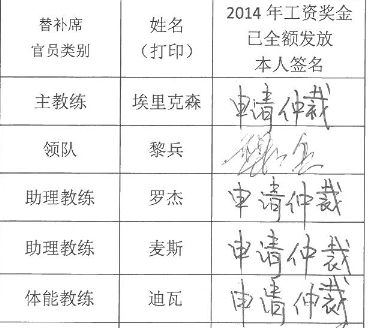 替补席
官员类别
姓名
（打印）
2014 年工资奖金
已全额发放
本人签名
主教练 埃里克森 申请仲裁
领队 黎兵
助理教练 罗杰 申请仲裁
助理教练 麦斯 申请仲裁
体能教练 迪瓦 申请仲裁